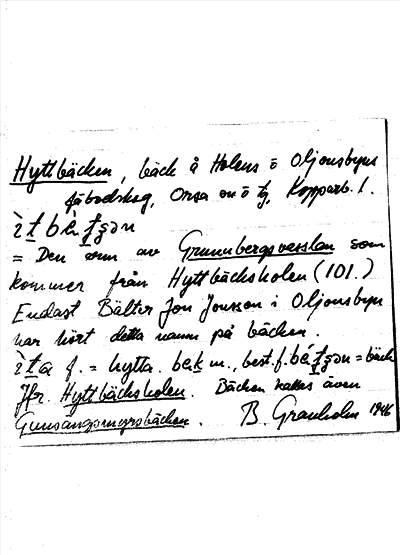 Hyttbäcken, bäck å Holens o Oljonsbyns
fäbodskog, Orsa sn o tg, Kopparb. l.
ìt bèⁿ tʂən
= Den som av Grunnbergsvasslan som
kommer från Hyttbäcksholen (101.)
Endast Bälter Jon Jonsson i Oljonsbyn
har hört detta namn på bäcken.
ìta f. = hytta. bek m., best. f. béⁿtʂən = bäck
Jfr. Hyttbäcksholen. Bäcken kallas även
Gunsångsmyrsbäcken. B. Granholm 1946